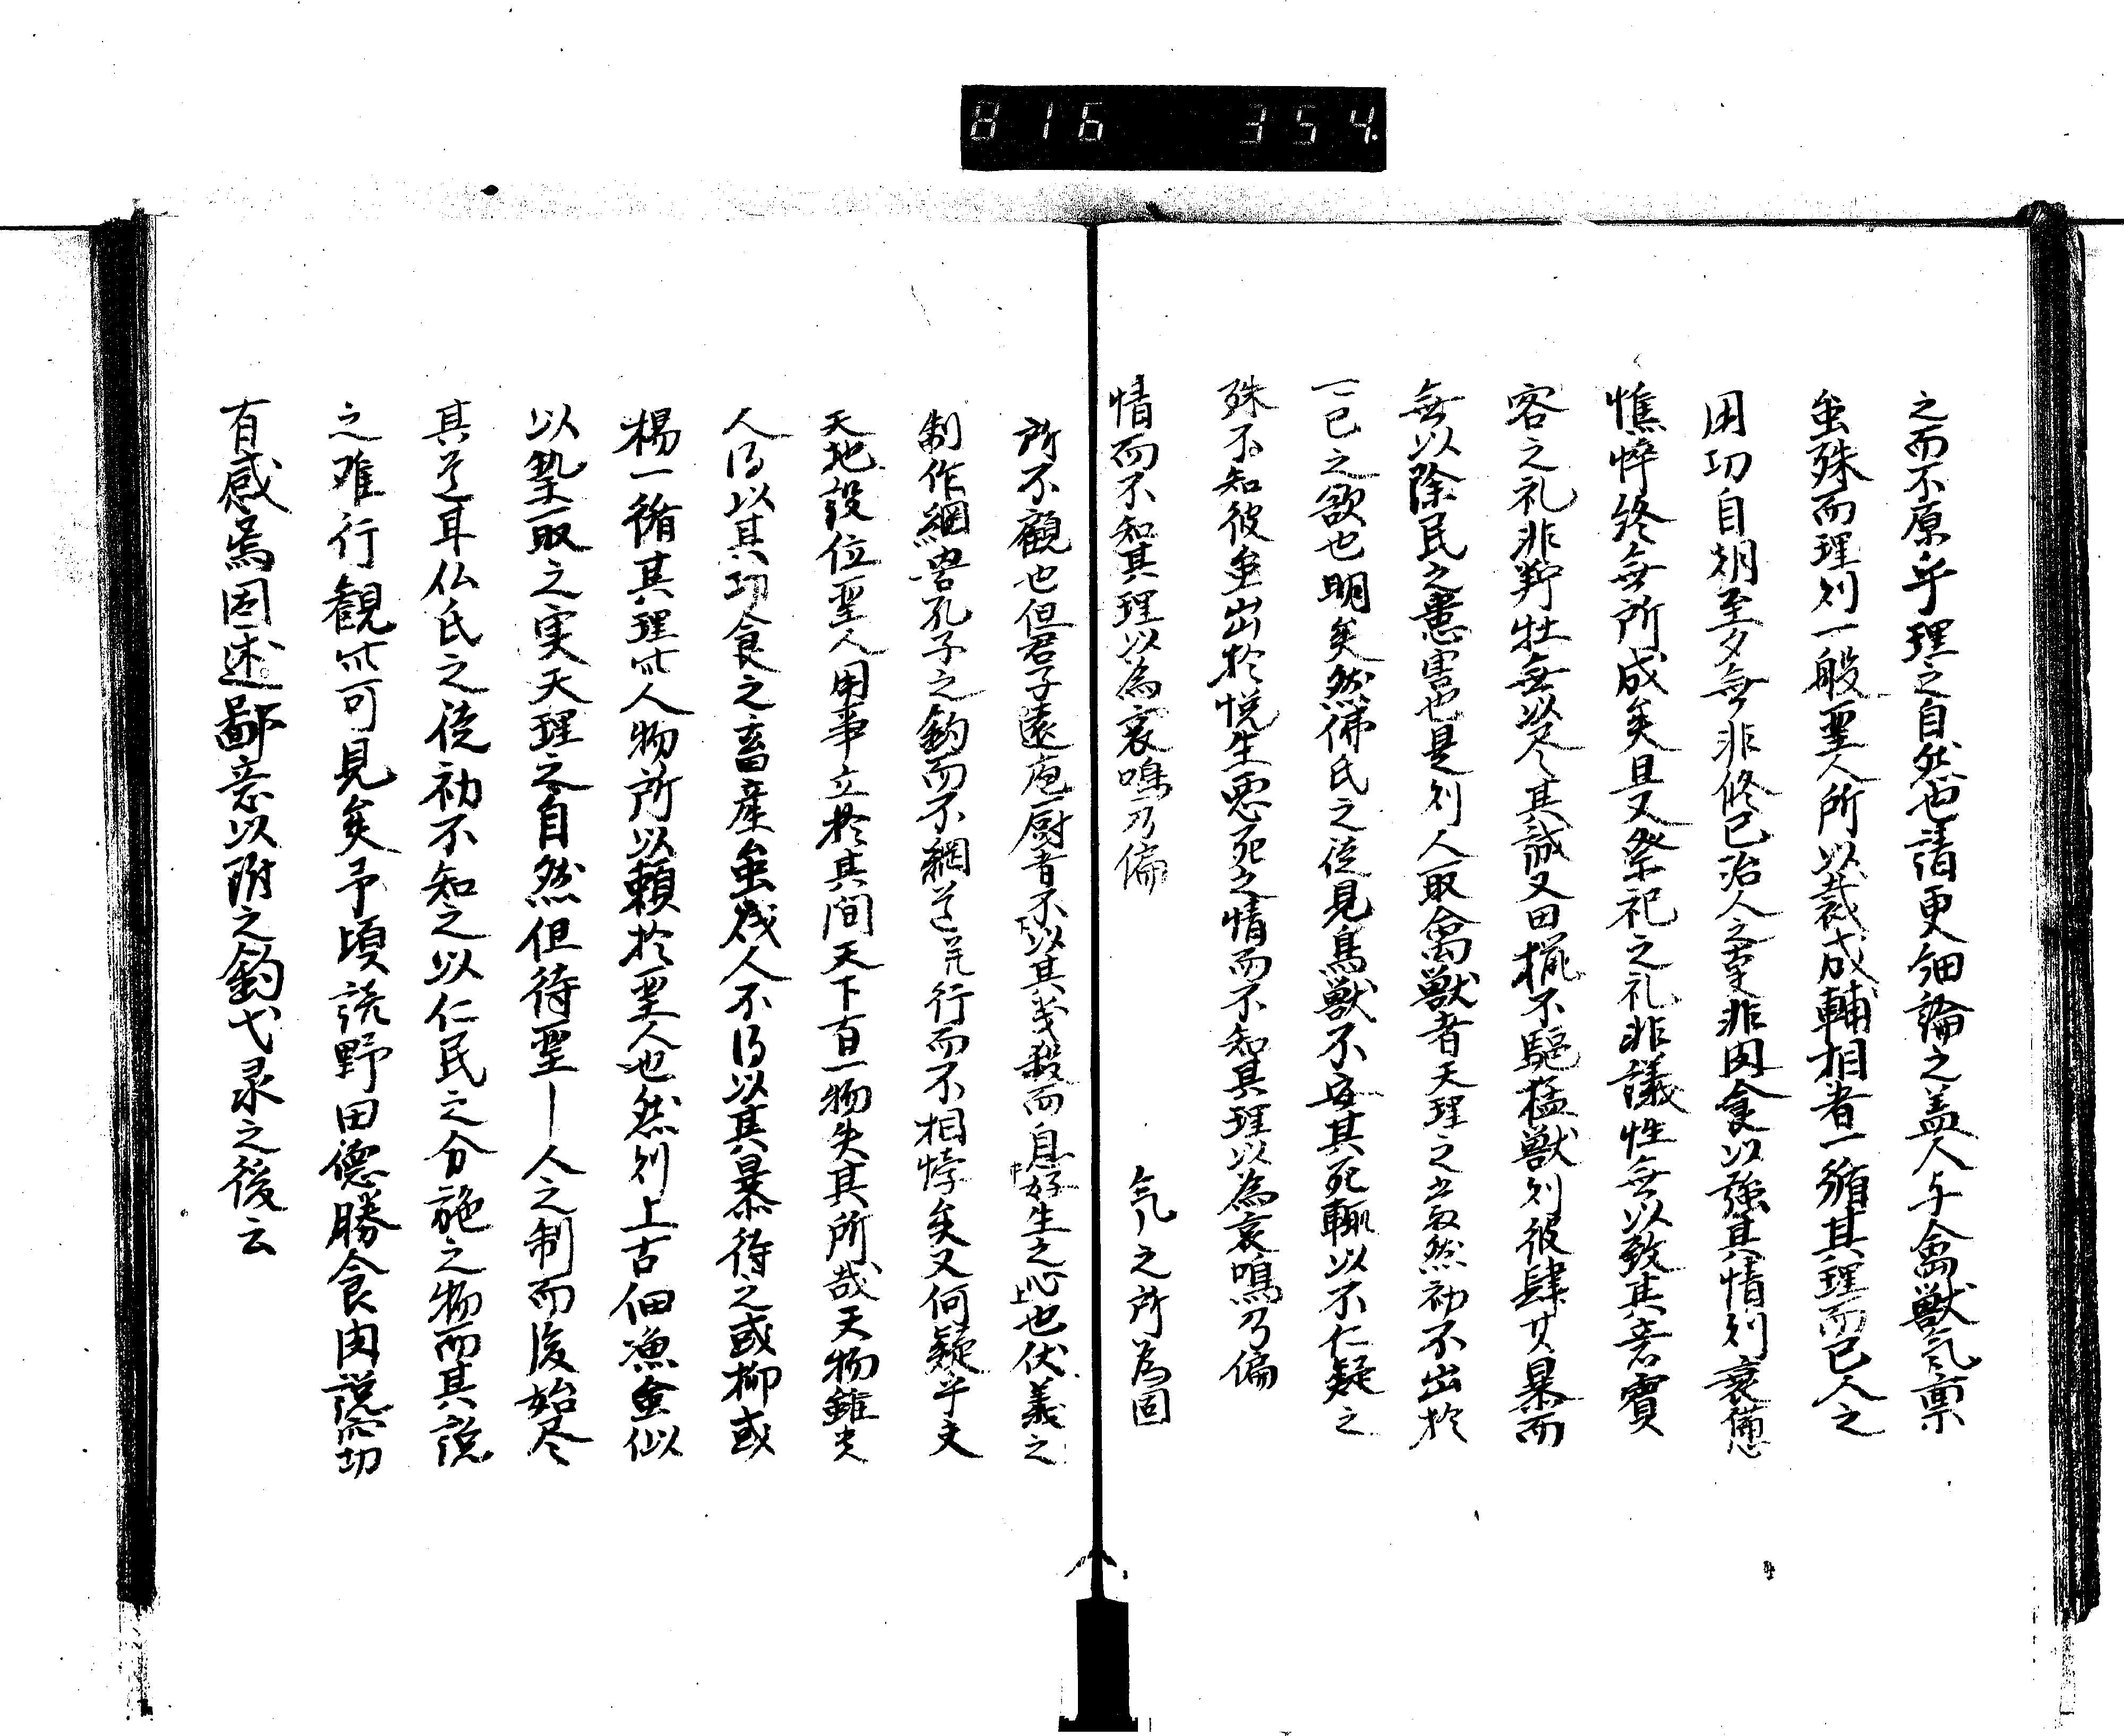 816 354.
之而不原乎理之自然也請更細論之蓋人与禽獣気稟
虽殊而理則一般聖人所以裁成輔相者一循其理而已人之
用功自朝至夕無非修己治人之事非肉食以強其情則衰憊
憔悴終無所成矣且又祭祀之礼非議性無以致其誉賓
客之礼非羜牡無以尽其誠又田猟不駆猛獣則彼肆其暴而
無以除民之患害也是則人取禽獣者天理之当然初不出於
一己之欲也明矣然佛氏之徒見鳥獣不安其死輒以不仁疑之
殊不知彼虽出於悦生悪死之情而不知其理以為哀鳴乃偏
情而不知其理以為哀鳴乃偏 気之所為固
所不顧也但君子遠庖厨者不以其義殺而息好生之心也伏義之
制作網罟孔子之釣而不綱道並行而不相悖矣又何疑乎夫
天地設位聖人用事立於其間天下百一物失其所哉天物雖
人得以其功食之畜産虽残人不得以其暴待之或抑或
楊一循其理此人物所以頼於聖人也然則上古佃漁虽似
以執取之実天理之自然但待聖｜人之制而後始尽
其道耳仏氏之徒初不知之以仁民之分施之物而其説
之难行観此可見矣予頃読野田徳勝食肉説而切
有感焉因述鄙意以附之釣弋录之後云